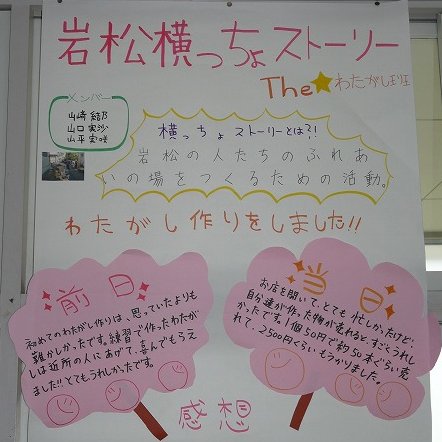 岩松横っちょストーリー
The★わたがし
メンバー
山崎 結乃
山口 実沙
山平 実咲
横っちょストーリーとは?!
岩松の人たちのふれあ
いの場をつくるための活動。
わたがし作りをしました!!
前日
初めてのわたがし作りは、思っていたよりも
難かしかったです。練習で作ったわたが
しは近所の人にあげて、喜んでもらえ
ました!!とてもうれしかったです。
当日
お店を開いて、とても忙しかったけど、
自分達が作った物が売れると、すごくうれし
かったです。1個50円で約50本ぐらい売
れて、2500円ぐらいもうかりました。
感想